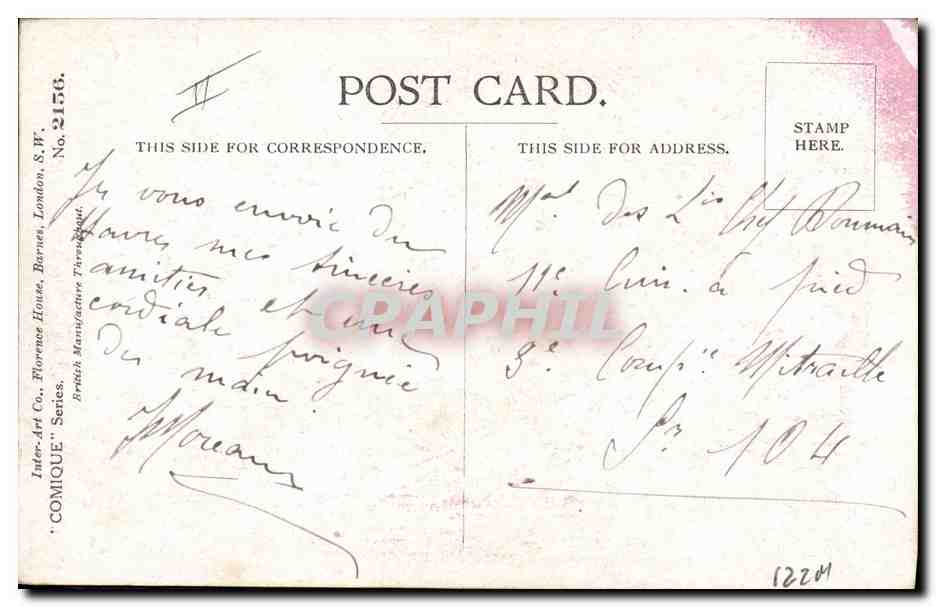 II
POST CARD.
THIS SIDE FOR CORRESPONDENCE.
THIS SIDE FOR ADDRESS.
STAMP
HERE.
Inter-Art Co., Florence House, Barnes, London, S.W.
"COMIQUE" Series.
No. 2156.
British Manufacture Throughout.
Je vous envoie du
Havre mes sincères
amitiés et une
cordiale poignée
de main
Moreau
Mal des Lis Chef Roumain
11e Cuir. à pied
3e Compie Mitraille
Sr 104
CPAPHIL